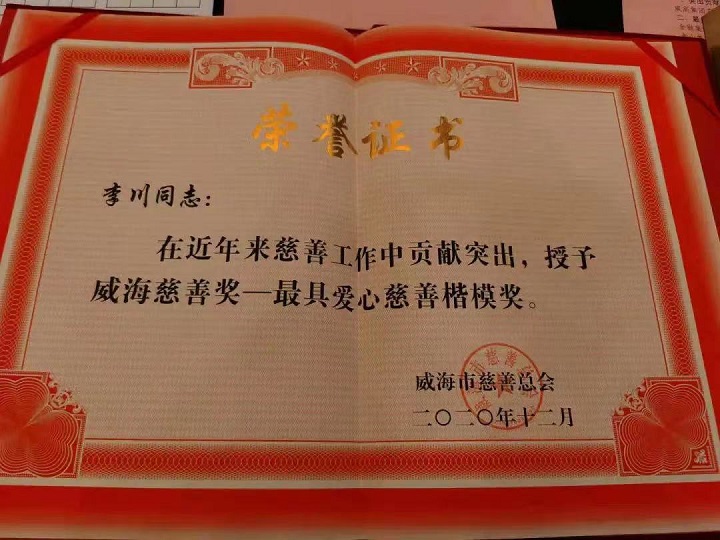 荣誉证书
李川同志：
在近年来慈善工作中贡献突出，授予
威海慈善奖—最具爱心慈善楷模奖。
威海市慈善总会
二〇二〇年十二月